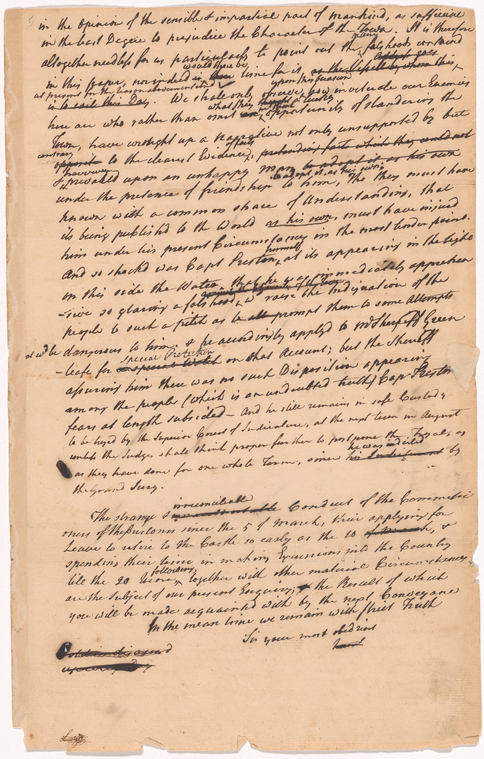 in the Opinion of the sensible & impartial part of Mankind, as sufficient
in the least Degree to prejudice the Character of the Town. It is therefore
altogether needless for us particularly to point out the many falshoods contained
in this paper, nor indeed would there be time for it
at present for the reason abovementiond
is to sail this Day. We shall only observe, upon
here are who rather than omit what they thought a lucky opportunity of slandering the
Town, have wrought up a Narrative not only unsupported by but
contrary to the clearest Evidence of facts, pretending facts which they could not
& prevailed upon an unhappy man to adopt it as his own
under the pretence of friendship to him, Tho they must have
known with a common share of Understanding, that
its being published to the World as his own must have injured
him under his present Circumstances in the most tender point.
And so shockd was Capt Preston himself, at its appearing in the light
on this side the Water, that he immediately apprehen
-sive so glaring a falshood, wd raise the Indignation of the
people to such a pitch as to prompt them to some Attempts
as wd be dangerous to him; & he accordingly applied to Mr Sheriff Green
-leafe for special Protection on that Account; but the Sheriff
assuring him there was no such Disposition appearing
among the people (which is an undoubted truth) Cap Prestons
fears at length subsided - And he still remains in safe Custody
to be tryed by the Superior Court of Judicature, at the next term in August
unless the Judges shall think proper further to postpone the Tryal, as
they have done for one whole Term, since he was indicted by
the Grand Jury.
The strange & irreconcileable Conduct of the Commissi
oners of the Customs since the 5 of March, their applying for
Leave to retire to the Castle so early as the 10 &
spending their time in making Excursions into the Country
till the 20 June following, together with other material Circumstances
are the Subject of our present Enquiry, the Result of which
you will be made acquainted with by the next Conveyance
In the mean time we remain with strict Truth
Sir your most obedient